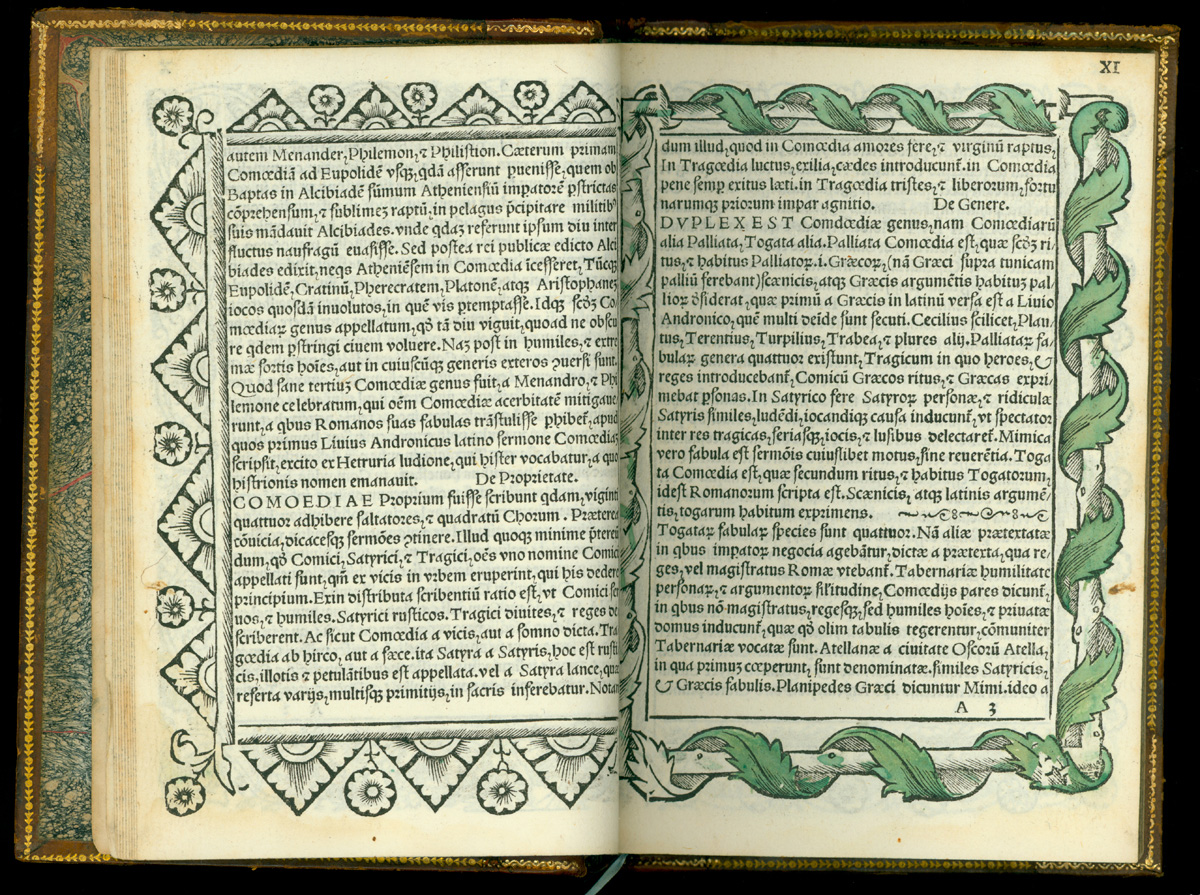 autem Menander, Philemon, ⁊ Philistion. Cæterum primam
Comœdiã ad Eupolidẽ vsqꝫ, qdã asserunt ꝑuenisse, quem ob
Baptas in Alcibiadẽ sũmum Atheniensiũ impatorẽ ꝑstrictas
cõprehensum, ⁊ sublimeꝫ raptũ, in pelagus p̃cipitare militibꝰ
suis mãdauit Alcibiades. vnde qdaꝫ referunt ipsum diu inter
fluctus naufragũ euasisse. Sed postea rei publicæ edicto Alci
biades edixit, neqꝫ Atheniẽsem in Comœdia ĩcesseret, Tũcqꝫ
Eupolidẽ, Cratinũ, Pherecratem, Platonẽ, atqꝫ Aristophaneꝫ
iocos quosdã inuolutos, in quẽ vis ptemptasse. Idqꝫ scðꝫ Co
mœdiaꝝ genus appellatum, qð tã diu viguit, quoad ne obscu
re qdem ꝑstringi ciuem voluere. Naꝫ post in humiles, ⁊ extre
mæ sortis hoĩes, aut in cuiuscũqꝫ generis exteros ꝯuersi sunt.
Quod sane tertiuꝫ Comœdiæ genus fuit, a Menandro, ⁊ Phi
lemone celebratum, qui oẽm Comœdiæ acerbitatẽ mitigaue
runt, a qbus Romanos suas fabulas trãstulisse phibẽt, apud
quos primus Liuius Andronicus latino sermone Comœdiaꝫ
scripsit, excito ex Hetruria ludione, qui hister vocabatur, a quo
histrionis nomen emanauit. De Proprietate.
COMOEDIAE Proprium fuisse scribunt qdam, viginti
quattuor adhibere saltatores, ⁊ quadratũ Chorum. Præterea
cõuicia, dicacesqꝫ sermões ꝯtinere. Illud quoqꝫ minime p̃tereũ
dum, qð Comici, Satyrici, ⁊ Tragici, oẽs vno nomine Comici
appellati sunt, qm̃ ex vicis in vrbem eruperint, qui his dedere
principium. Exin distributa scribentiũ ratio est, vt Comici ser
uos, ⁊ humiles. Satyrici rusticos. Tragici diuites, ⁊ reges de
scriberent. Ac sicut Comœdia a vicis, aut a somno dicta. Tra
gœdia ab hirco, aut a fæce. ita Satyra a Satyris, hoc est rusti
cis, illotis ⁊ petulãtibus est appellata. vel a Satyra lance, quæ
referta varijs, multisqꝫ primitijs, in sacris inferebatur. Notan
XI
dum illud, quod in Comœdia amores fere, ⁊ virginũ raptus,
In Tragœdia luctus, exilia, cædes introducunt̃. in Comœdia
pene semꝑ exitus læti. in Tragœdia tristes, ⁊ liberorum, fortu
narumqꝫ priorum impar agnitio. De Genere.
DVPLEX EST Comdœdiæ genus, nam Comœdiarũ
alia Palliata, Togata alia. Palliata Comœdia est, quæ scðꝫ ri-
tus, ⁊ habitus Palliatoꝝ. i. Græcoꝝ, (nã Græci supra tunicam
palliũ ferebant) scæenicis, atqꝫ Græcis argumẽtis habitũ pal
lioꝝ ꝯsiderat, quæ primũ a Græcis in latinũ versa est a Liuio
Andronico, quẽ multi deĩde sunt secuti. Cecilius scilicet, Plau
tus, Terentius, Turpilius, Trabea, ⁊ plures alij. Palliataꝝ fa-
bulaꝝ genera quattuor existunt, Tragicum in quo heroes, &
reges introducebant̃, Comicũ Græcos ritus, ⁊ Græcas expri-
mebat ꝑsonas. In Satyrico fere Satyroꝝ personæ, ⁊ ridiculæ
Satyris similes, ludẽdi, iocandiqꝫ causa inducunt̃, vt spectator
inter res tragicas, seriasqꝫ, iocis, ⁊ lusibus delectaret̃. Mimica
vero fabula est sermõis cuiuslibet motus, sine reuerẽtia. Toga
ta Comœdia est, quæ secundum ritus, ⁊ habitus Togatorum,
idest Romanorum scripta est. Scænicis, atqꝫ latinis argumẽ-
tis, togarum habitum exprimens.
Togataꝝ fabulaꝝ species sunt quattuor. Nã aliæ prætextatæ
in qbus impatoꝝ negocia agebãtur, dictæ a prætexta, qua re-
ges, vel magistratus Romæ vtebant̃. Tabernariæ humilitate
personaꝝ, ⁊ argumentoꝝ sil̃itudine, Comœdijs pares dicunt̃,
in qbus nõ magistratus, regesqꝫ, sed humiles hoĩes, ⁊ priuatæ
domus inducunt̃, quæ qð olim tabulis tegerentur, cõmuniter
Tabernariæ vocatæ sunt. Atellanæ a ciuitate Oscorũ Atella,
in qua primuꝫ cœperunt, sunt denominatæ. similes Satyricis,
& Græcis fabulis. Planipedes Græci dicuntur Mimi. ideo a
A 3